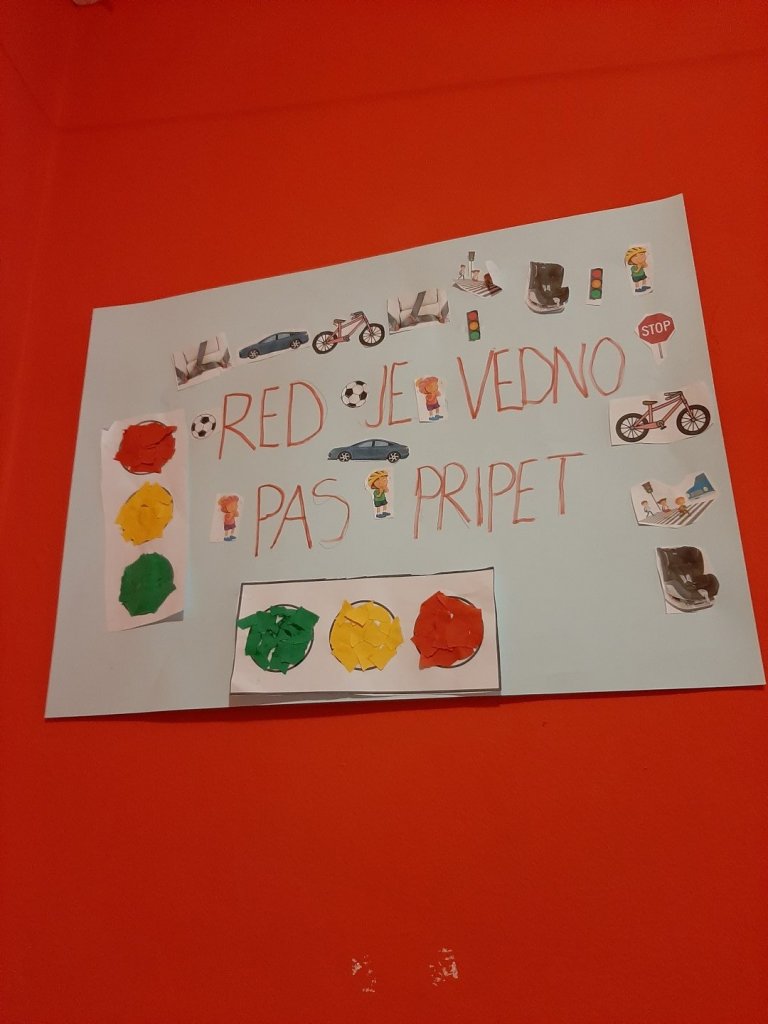 STOP
RED JE VEDNO
PAS PRIPET